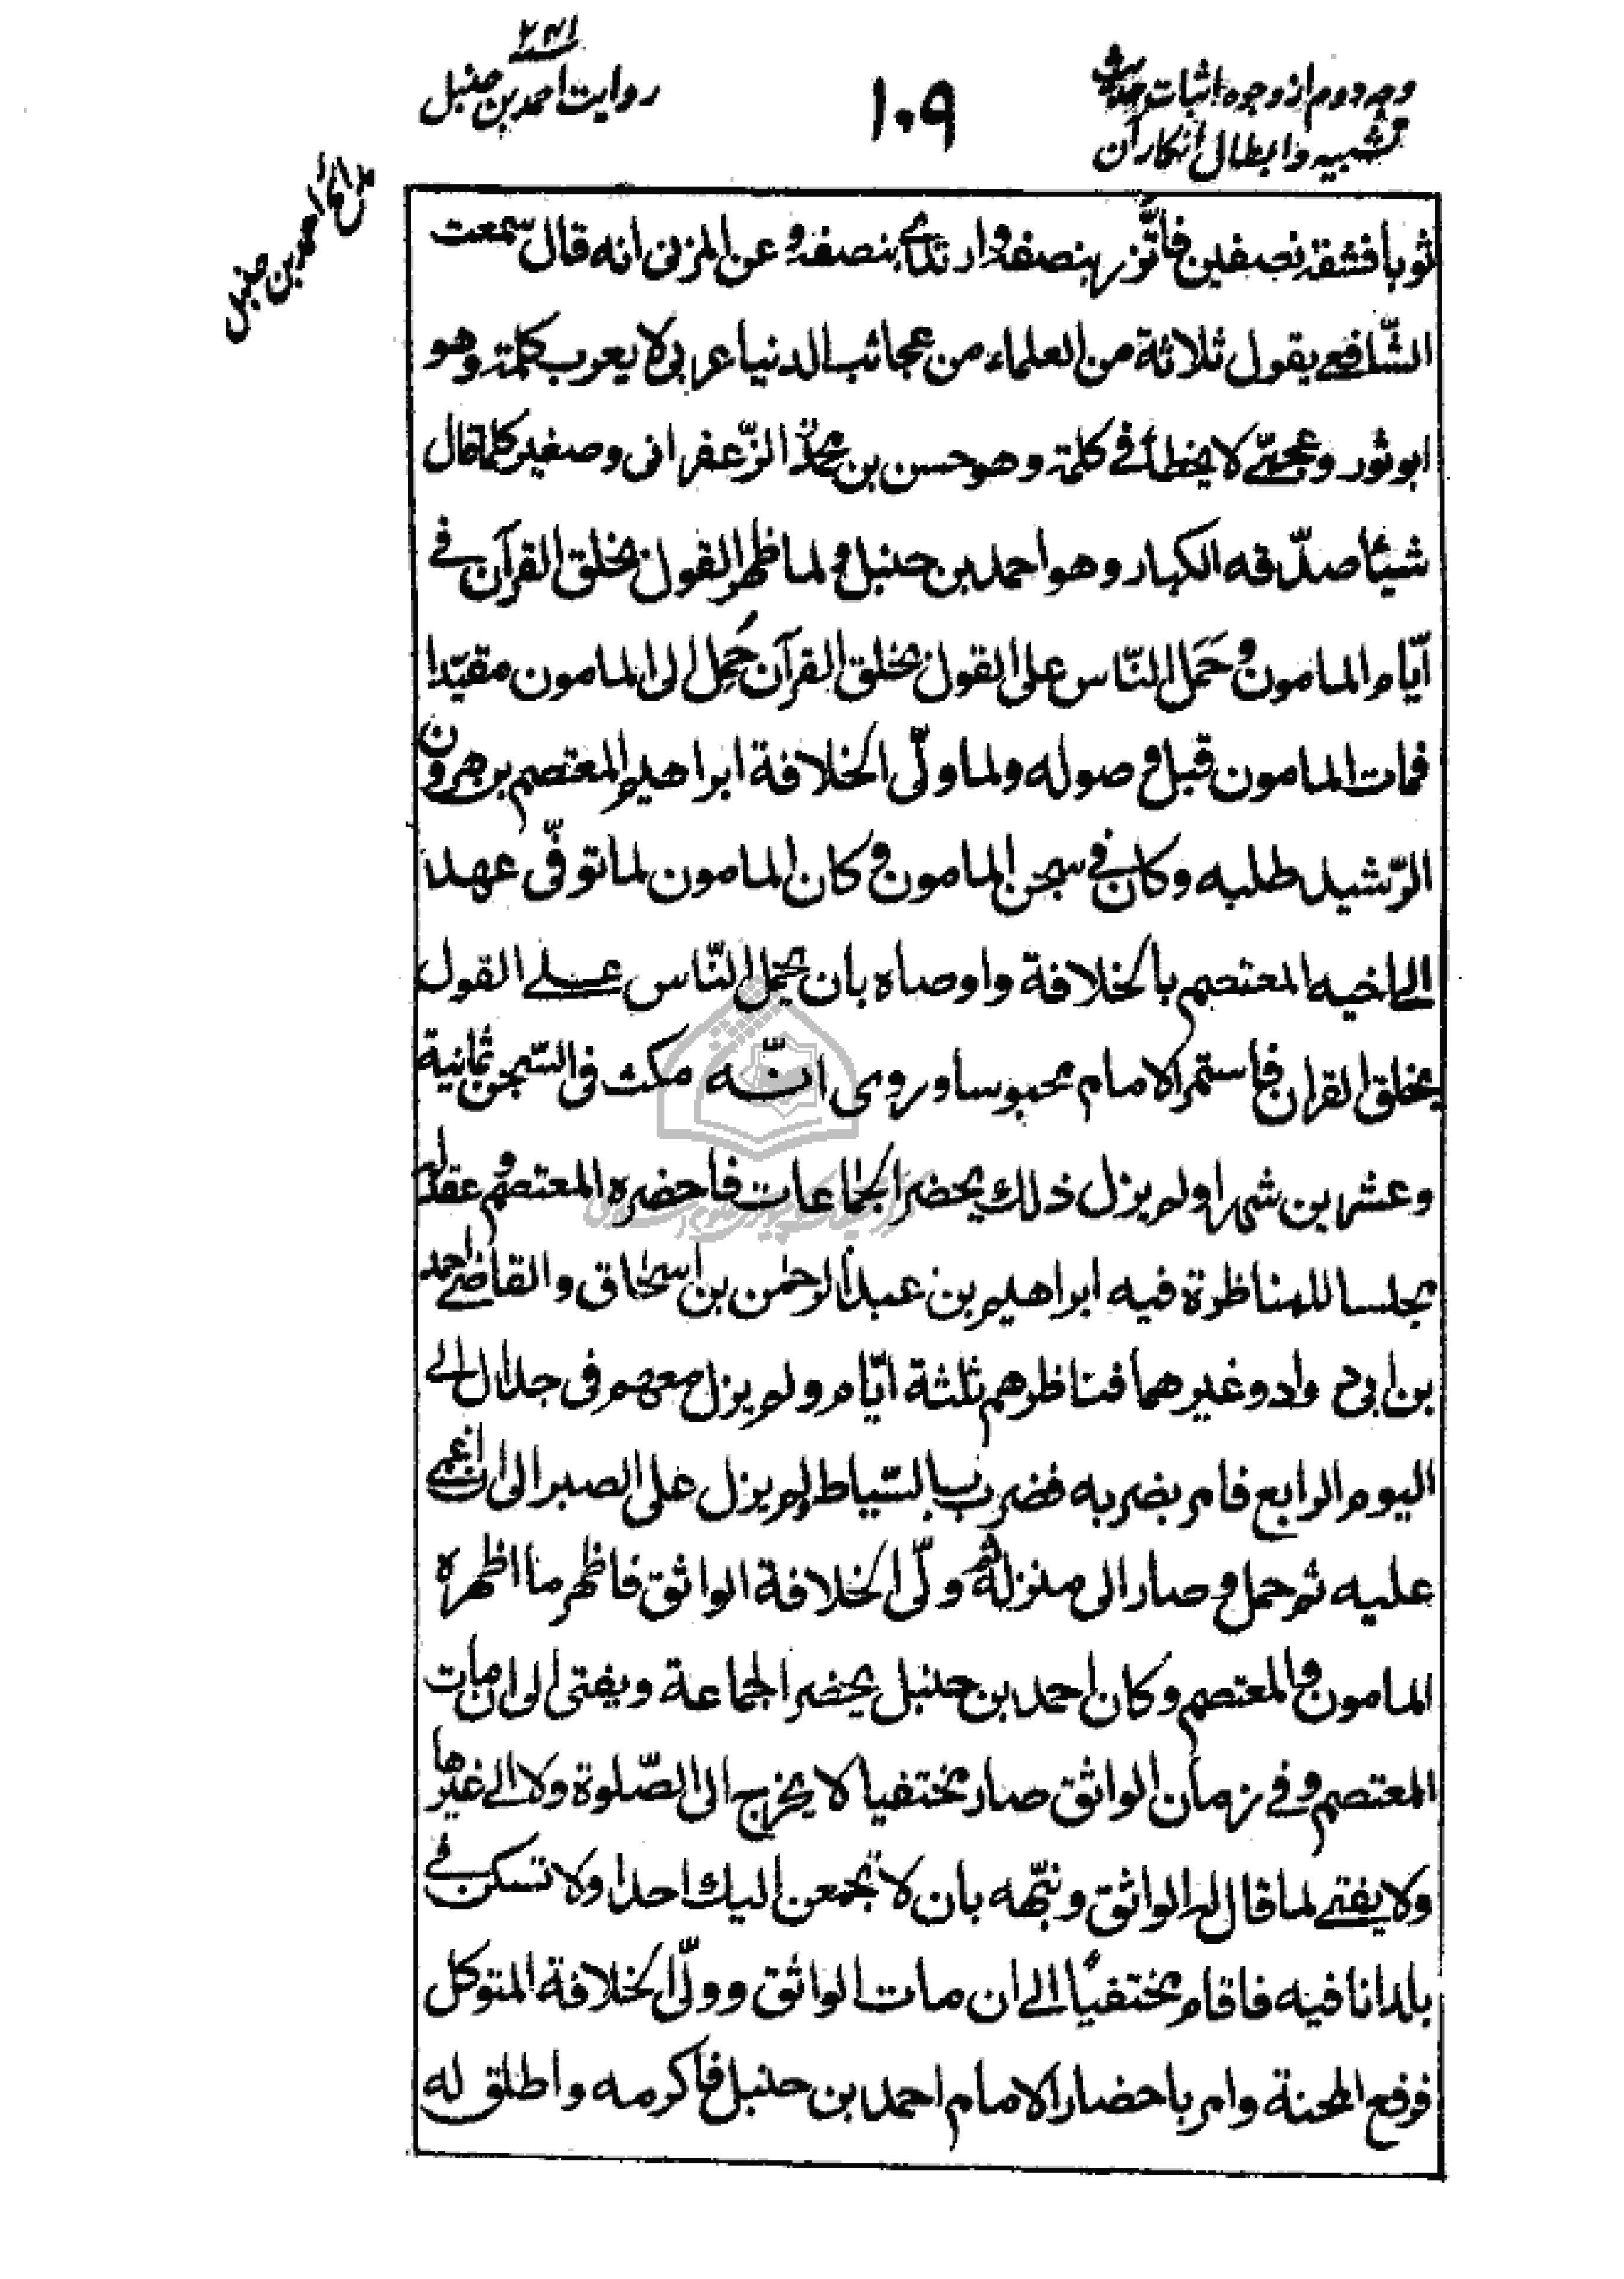 وجه دوم از وجوه اثبات حدیث
تشبیه و ابطال انکار آن
١٠٩
٢٤١
روایت احمد بن حنبل
مدائح احمد بن حنبل
ثوبا فشقه نصفین فاتّزر بنصفه وارتدی بنصفه وعن المزنی انه قال سمعت
الشّافعے یقول ثلاثة من العلماء من عجائب الدنیا عربی لا یعرب کلمة وهو
ابو ثور وعجمیّ لا یخطأ فے کلمة وهو حسن بن محمّد الزّعفرانی وصغیر کلما قال
شیئا صدّقه الکبار وهو احمد بن حنبل ولما ظهر القول بخلق القرآن فے
ایّام المامون وحَمَل النّاس علی القول بخلق القرآن حُمِل الی المامون مقیّدا
فمات المامون قبل وصوله ولما ولّی الخلافة ابراهیم المعتصم بن هرون
الرّشید طلبه وکان فے سجن المامون وکان المامون لما توفّی عهد
الے اخیه المعتصم بالخلافة واوصاه بان یحمل النّاس علے القول
بخلق القران فاستمر الامام محبوسا وروی انّه مکث فی السّجن ثمانیة
وعشرین شهرا ولم یزل ذلك یحضر الجماعات فاحضره المعتصم وعقد له
مجلسا للمناظرة فیه ابراهیم بن عبد الرحمٰن بن اسحٰاق والقاضے احمد
بن ابی دواد وغیرهما فناظرهم ثلثة ایّام ولم یزل معهم فی جدال الے
الیوم الرابع فامر بضربه فضرب بالسّیاط ولم یزل علی الصبر الی ان اغمی
علیه ثم حمل وصار الی منزله ثم ولّی الخلافة الواثق فاظهر ما اظهره
المامون والمعتصم وکان احمد بن حنبل یحضر الجماعة ویفتی الی ان مات
المعتصم وفے زمان الواثق صار مختفیا لا یخرج الی الصّلوة ولا الے غیرها
ولا یفتے لما قال له الواثق ونبّهه بان لا تجمعن الیك احدا ولا تسکن فے
بلد انا فیه فاقام مختفیًا الے ان مات الواثق وولّی الخلافة المتوکل
فرفع المحنة وامر باحضار الامام احمد بن حنبل فاکرمه واطلق له